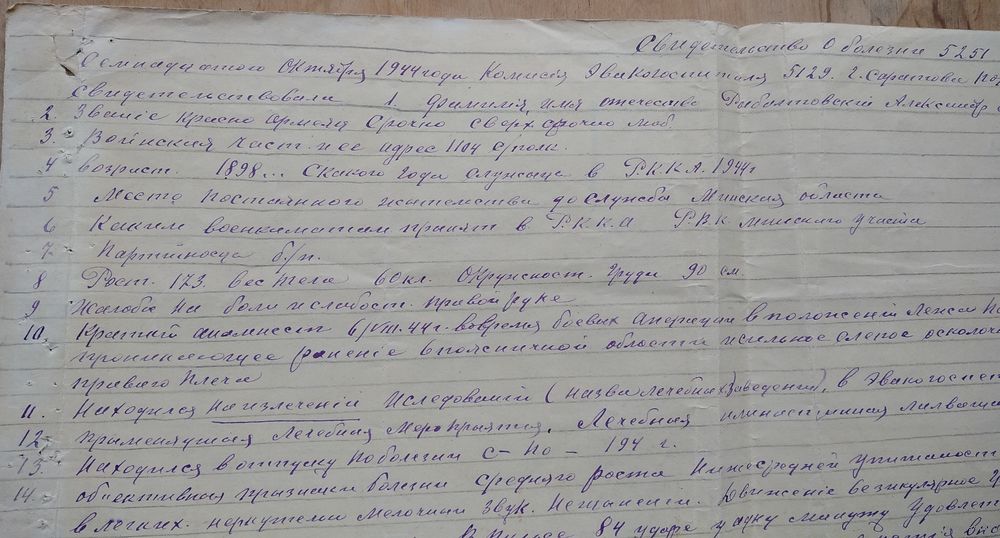 Свидетельство о болезни 5251
Семнадцатого Октября 1944 года Комисия Эвакогоспиталя 5129. г. Саратова
Свидетельствовали 1. Фамилия, имя отечество Александр
2. Звание красно армеец Срочно сверх срочно моб
3. Войнская част. и ее адрес 1104 с/полк.
4 возраст. 1898... Скакого года служица в Р.К.К.А. 1944 г
5 Место постоянного жительства до службы Минская области
6 Каким военкоматам принят в Р.К.К.А Р.В.К минского участка
7. Партийносца б/п.
8 Рост. 173. вес тела 60 кл. Окружност. груди 90 см.
9 Жалоба на боли и слабост. правой руке
10. Краткий анамнест 6/VIII.44 г. вовремя боевих операций в положений лежа
ранение в поясничной области и слепое
правого плеча
11. Находился на излечений Иследований (назва лечебных заведений), в
12. Применявшая лечебная мероприятия, Лечебная
13. Находился вотпуску по болезни с – по – 194 г.
14. обективная признаки болезни среднего роста нижесредней
в легких. звук. Движение везикулярное
84 удара у одну минуту